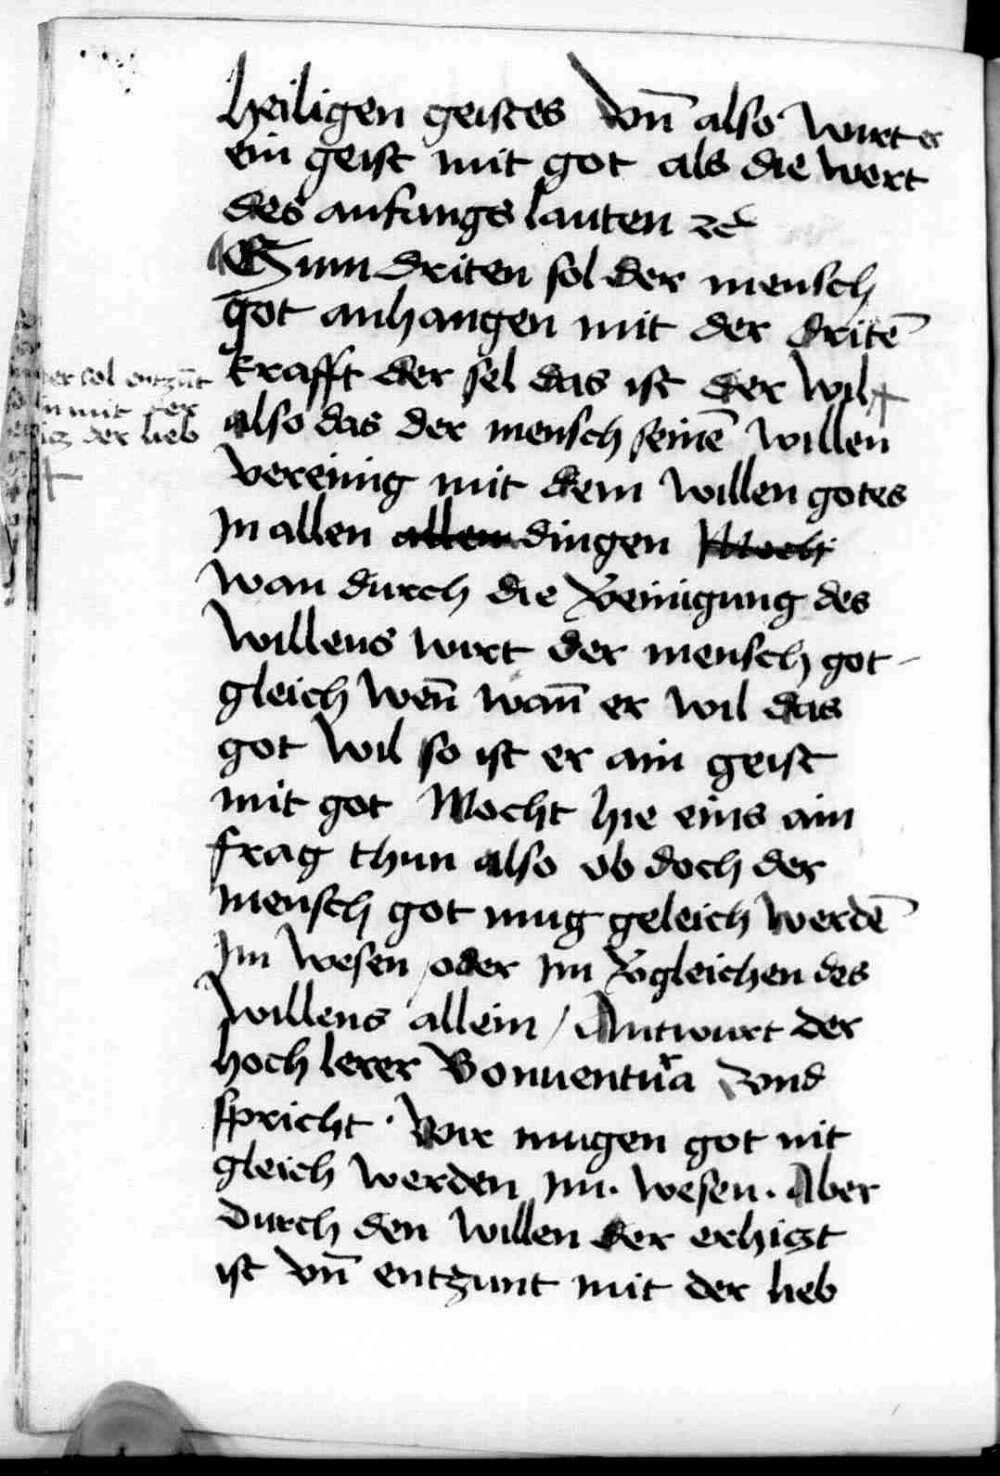 heiligen geistes vn̄ also wurt er
ein geist mit got als die wort
des anfangs lauten zc̄
Zum driten sol der mensch
got anhangen mit der dritē
krafft der sel das ist der wil +
er sol entzūt
mit der
der lieb
+
also das der mensch seinē willen
vereinig mit dem willen gotes
Jn allen allen dingen
wan durch die v̄einigung des
willens wirt der mensch got-
gleich wen̄ wan̄ er wil das
got wil so ist er ain geist
mit got Mocht hie eins ain
frag thun also ob doch der
mensch got mug geleich werdē
Jm wesen / oder Jm v̄gleichen des
willens allein / Antwurt der
hoch lerer Bonuentura vnd
spricht · Wir mugen got nit
gleich werden Jm · wesen · Aber
durch den willen der erhiczt
ist vn̄ entzunt mit der lieb